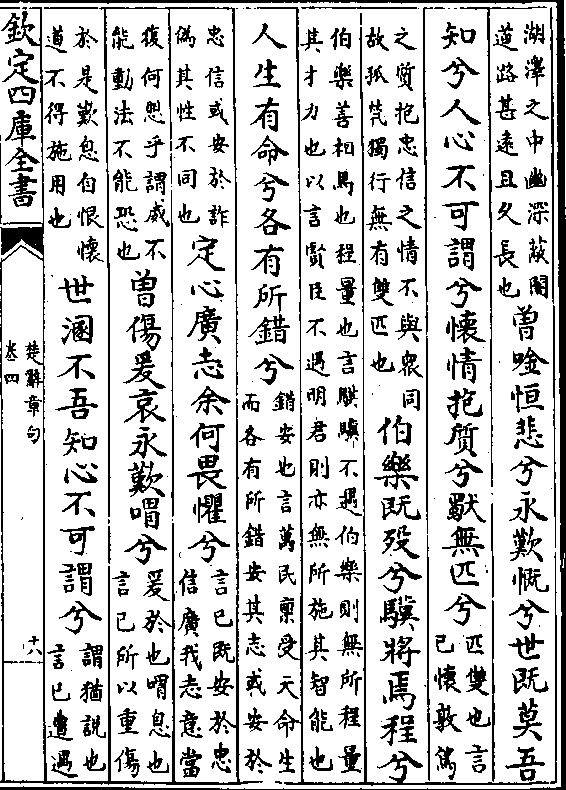 湖澤之中幽深蔽闇
道路甚遠且久長也
曽唫恒悲兮永歎慨兮世既莫吾
知兮人心不可謂兮懷情抱質兮獨無匹兮
匹雙也言
己懷敦篤
之質抱忠信之情不與衆同
故孤煢獨行無有雙匹也
伯樂既歿兮驥將焉程兮
伯樂善相馬也程量也言騏驥不遇伯樂則無所程量
其才力也以言賢臣不遇明君則亦無所施其智能也
人生有命兮各有所錯兮
錯安也言萬民稟受天命生
而各有所錯安其志或安於
忠信或安於詐
偽其性不同也
定心廣志余何畏懼兮
言己既安於忠
信廣我志意當
復何懼乎謂威不
能動法不能恐也
曽傷爰哀永歎喟兮
爰於也喟息也
言己所以重傷
於是歎息自恨懷
道不得施用也
世溷不吾知心不可謂兮
謂猶說也
言己遭遇
欽定四庫全書
楚辭章句
卷四
十八